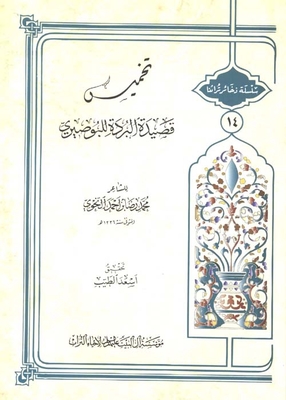 سلسلة ذخائر تراثنا
١٤
تخميس
قصيدة البردة للبوصيري
للشاعر
محمد رضا بن أحمد النحوي
المتوفى سنة ١٢٢٦ هـ
تحقيق
أسعد الطيب
مؤسسة آل البيت عليهم السلام لإحياء التراث